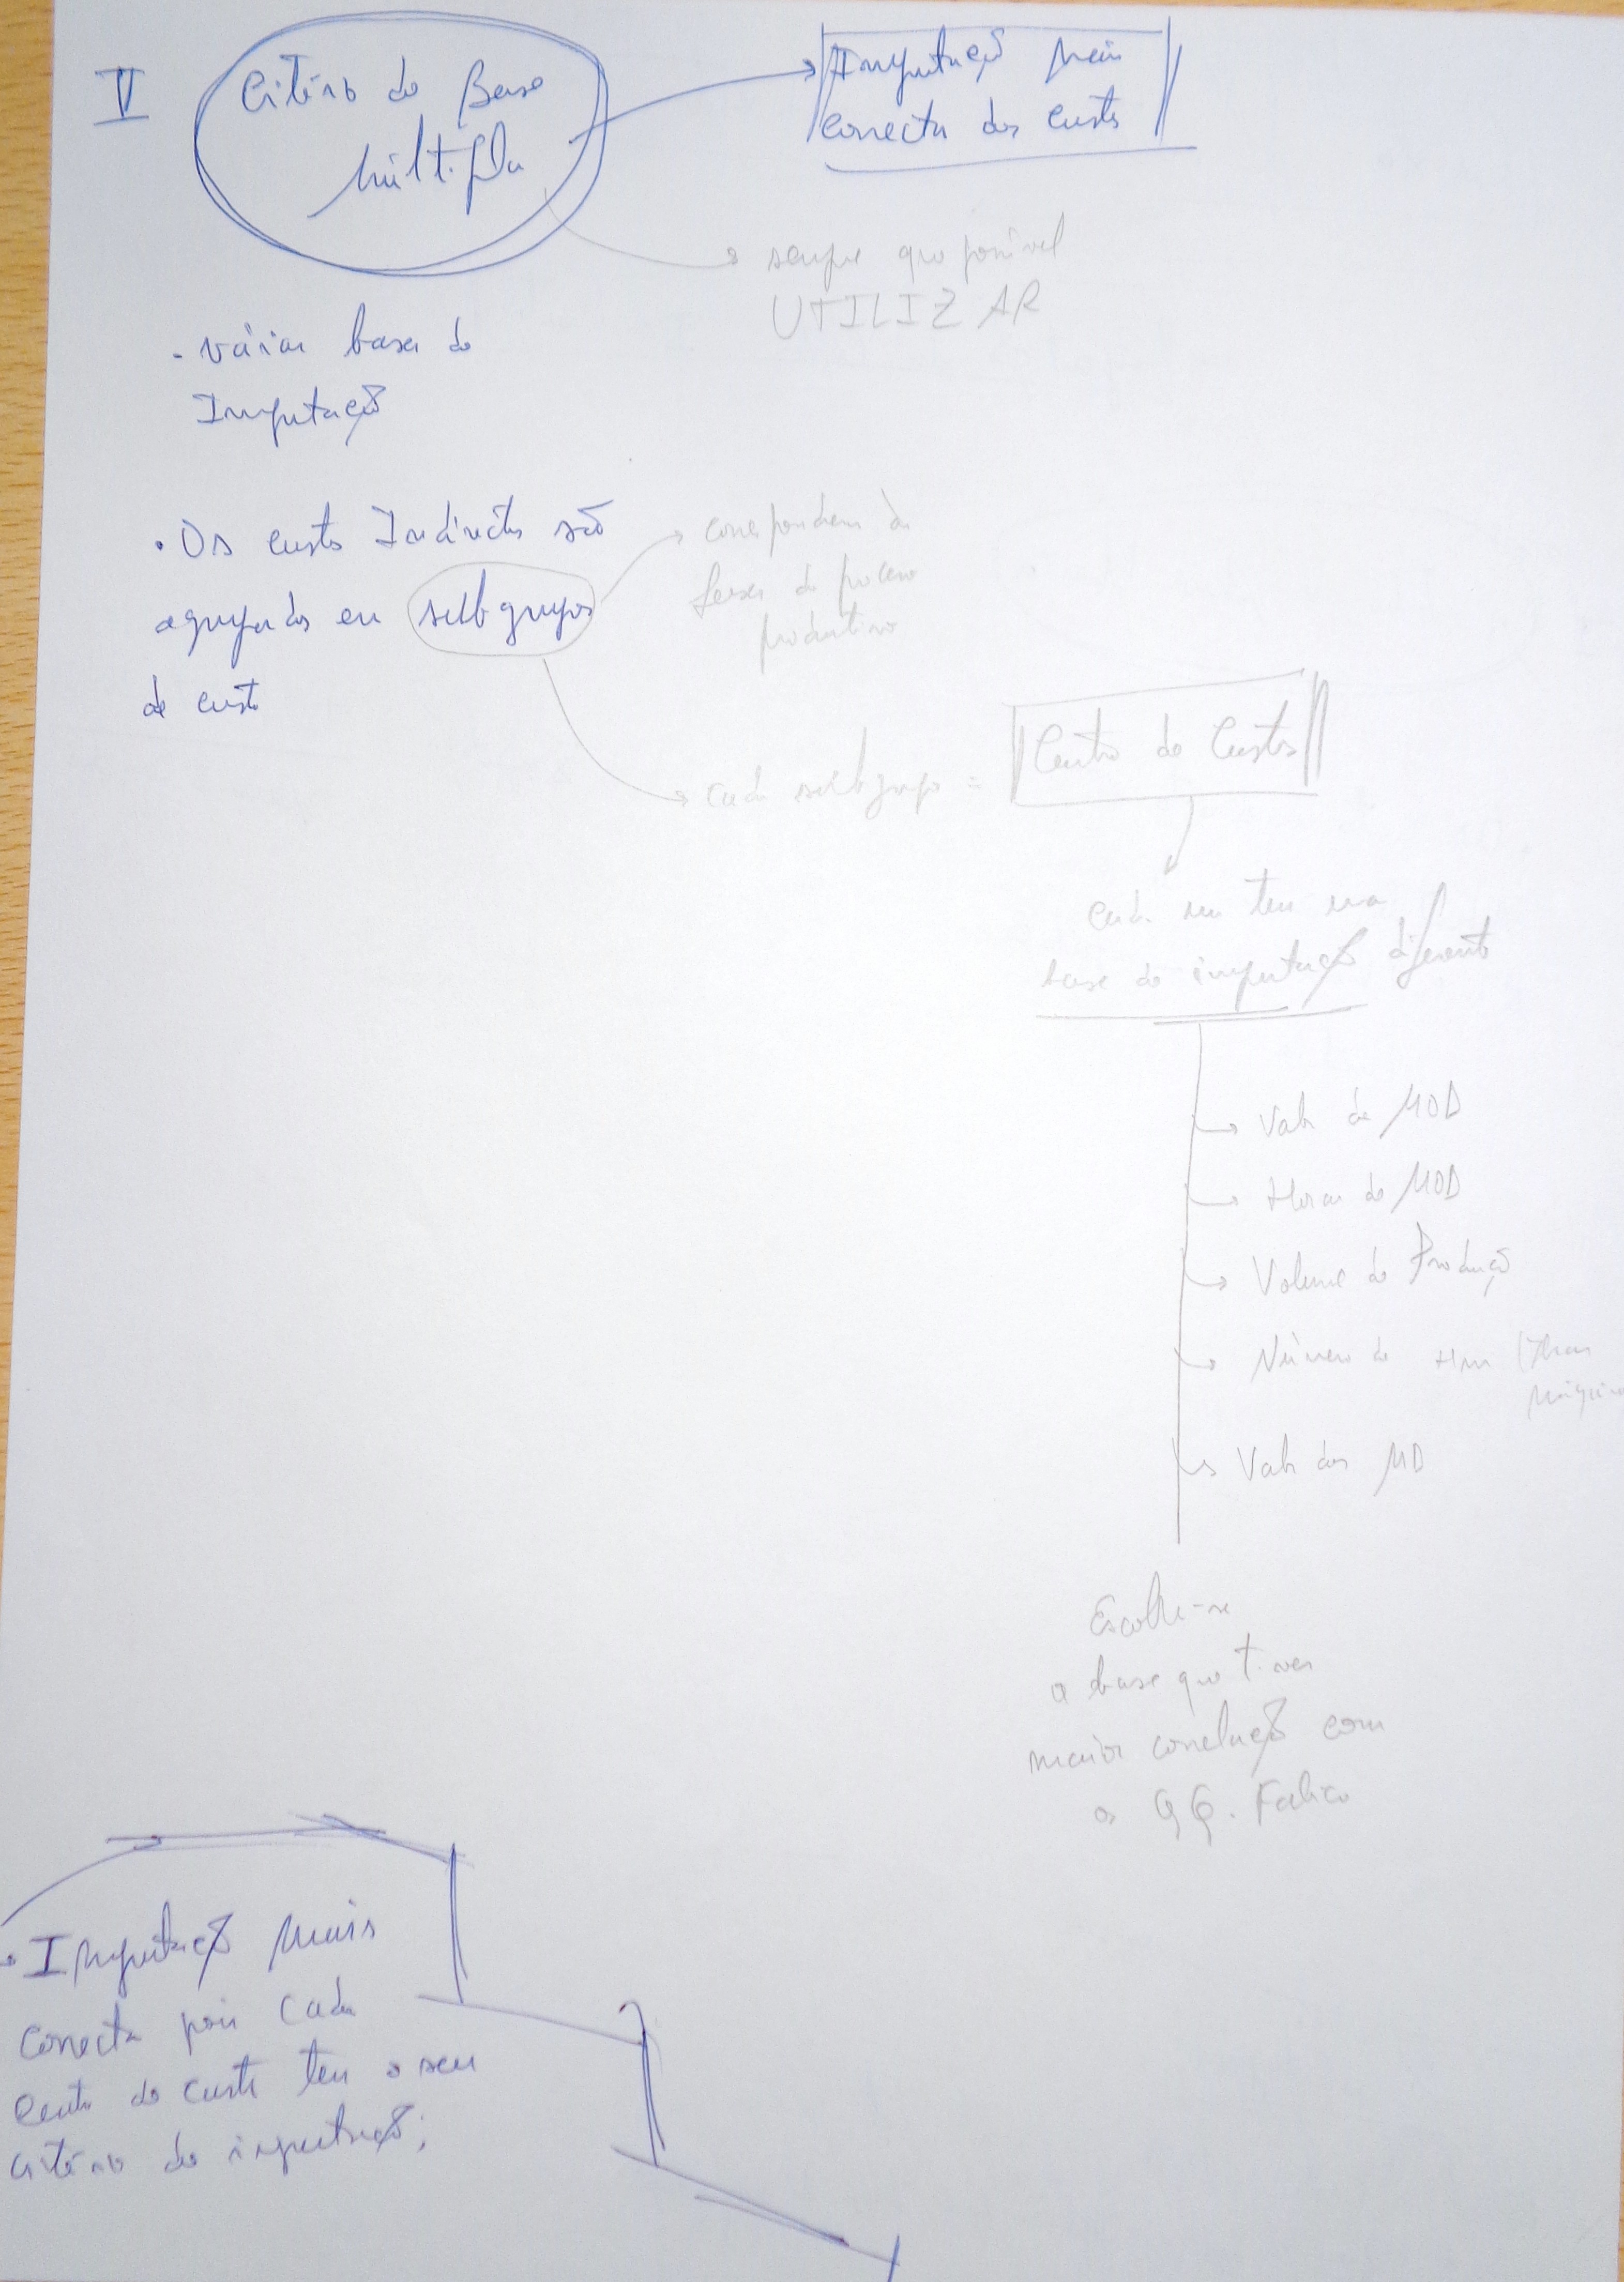 V
Critério de Base
Múltipla
Imputação mais
correcta dos custos
sempre que possível
UTILIZAR
- várias bases de
Imputação
• Os custos Indirectos são
agrupados em subgrupos
de custo
correspondem às
fases do processo
produtivo
cada subgrupo = Centro de Custos
cada um tem sua
base de imputação diferente
Valor da MOD
Horas de MOD
Volume de Produção
Número de Hm (Horas
Máquina
Valor das MD
Escolhe-se
a base que tiver
maior correlação com
os GG. Fabrico
• Imputação Mais
correcta pois cada
centro de custo tem o seu
critério de imputação;